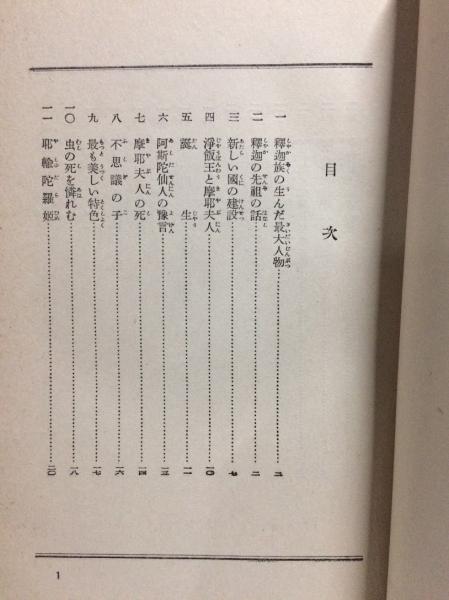 目次
一 釋迦族の生んだ最大人物 二
二 釋迦の先祖の話 二
三 新しい國の建設 七
四 淨飯王と摩耶夫人 一〇
五 誕生 一一
六 阿斯陀仙人の豫言 一三
七 摩耶夫人の死 一四
八 不思議の子 一六
九 最も美しい特色 一七
一〇 虫の死を憐れむ 一八
一一 耶輸陀羅姬 二〇
1